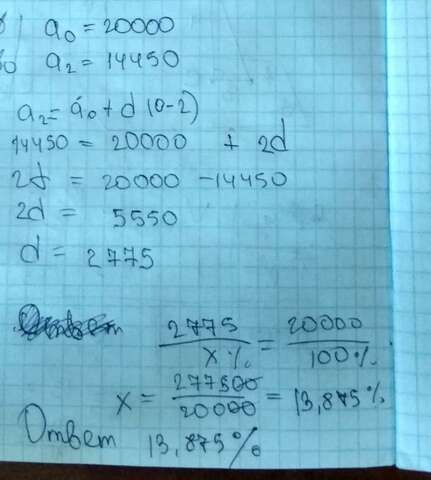 a₀ = 20000
a₂ = 14450
a₂ = a₀ + d (0-2)
14450 = 20000 + 2d
2d = 20000 - 14450
2d = 5550
d = 2775
2775 / x% = 20000 / 100%
x = 277500 / 20000 = 13,875%
Ответ 13,875%